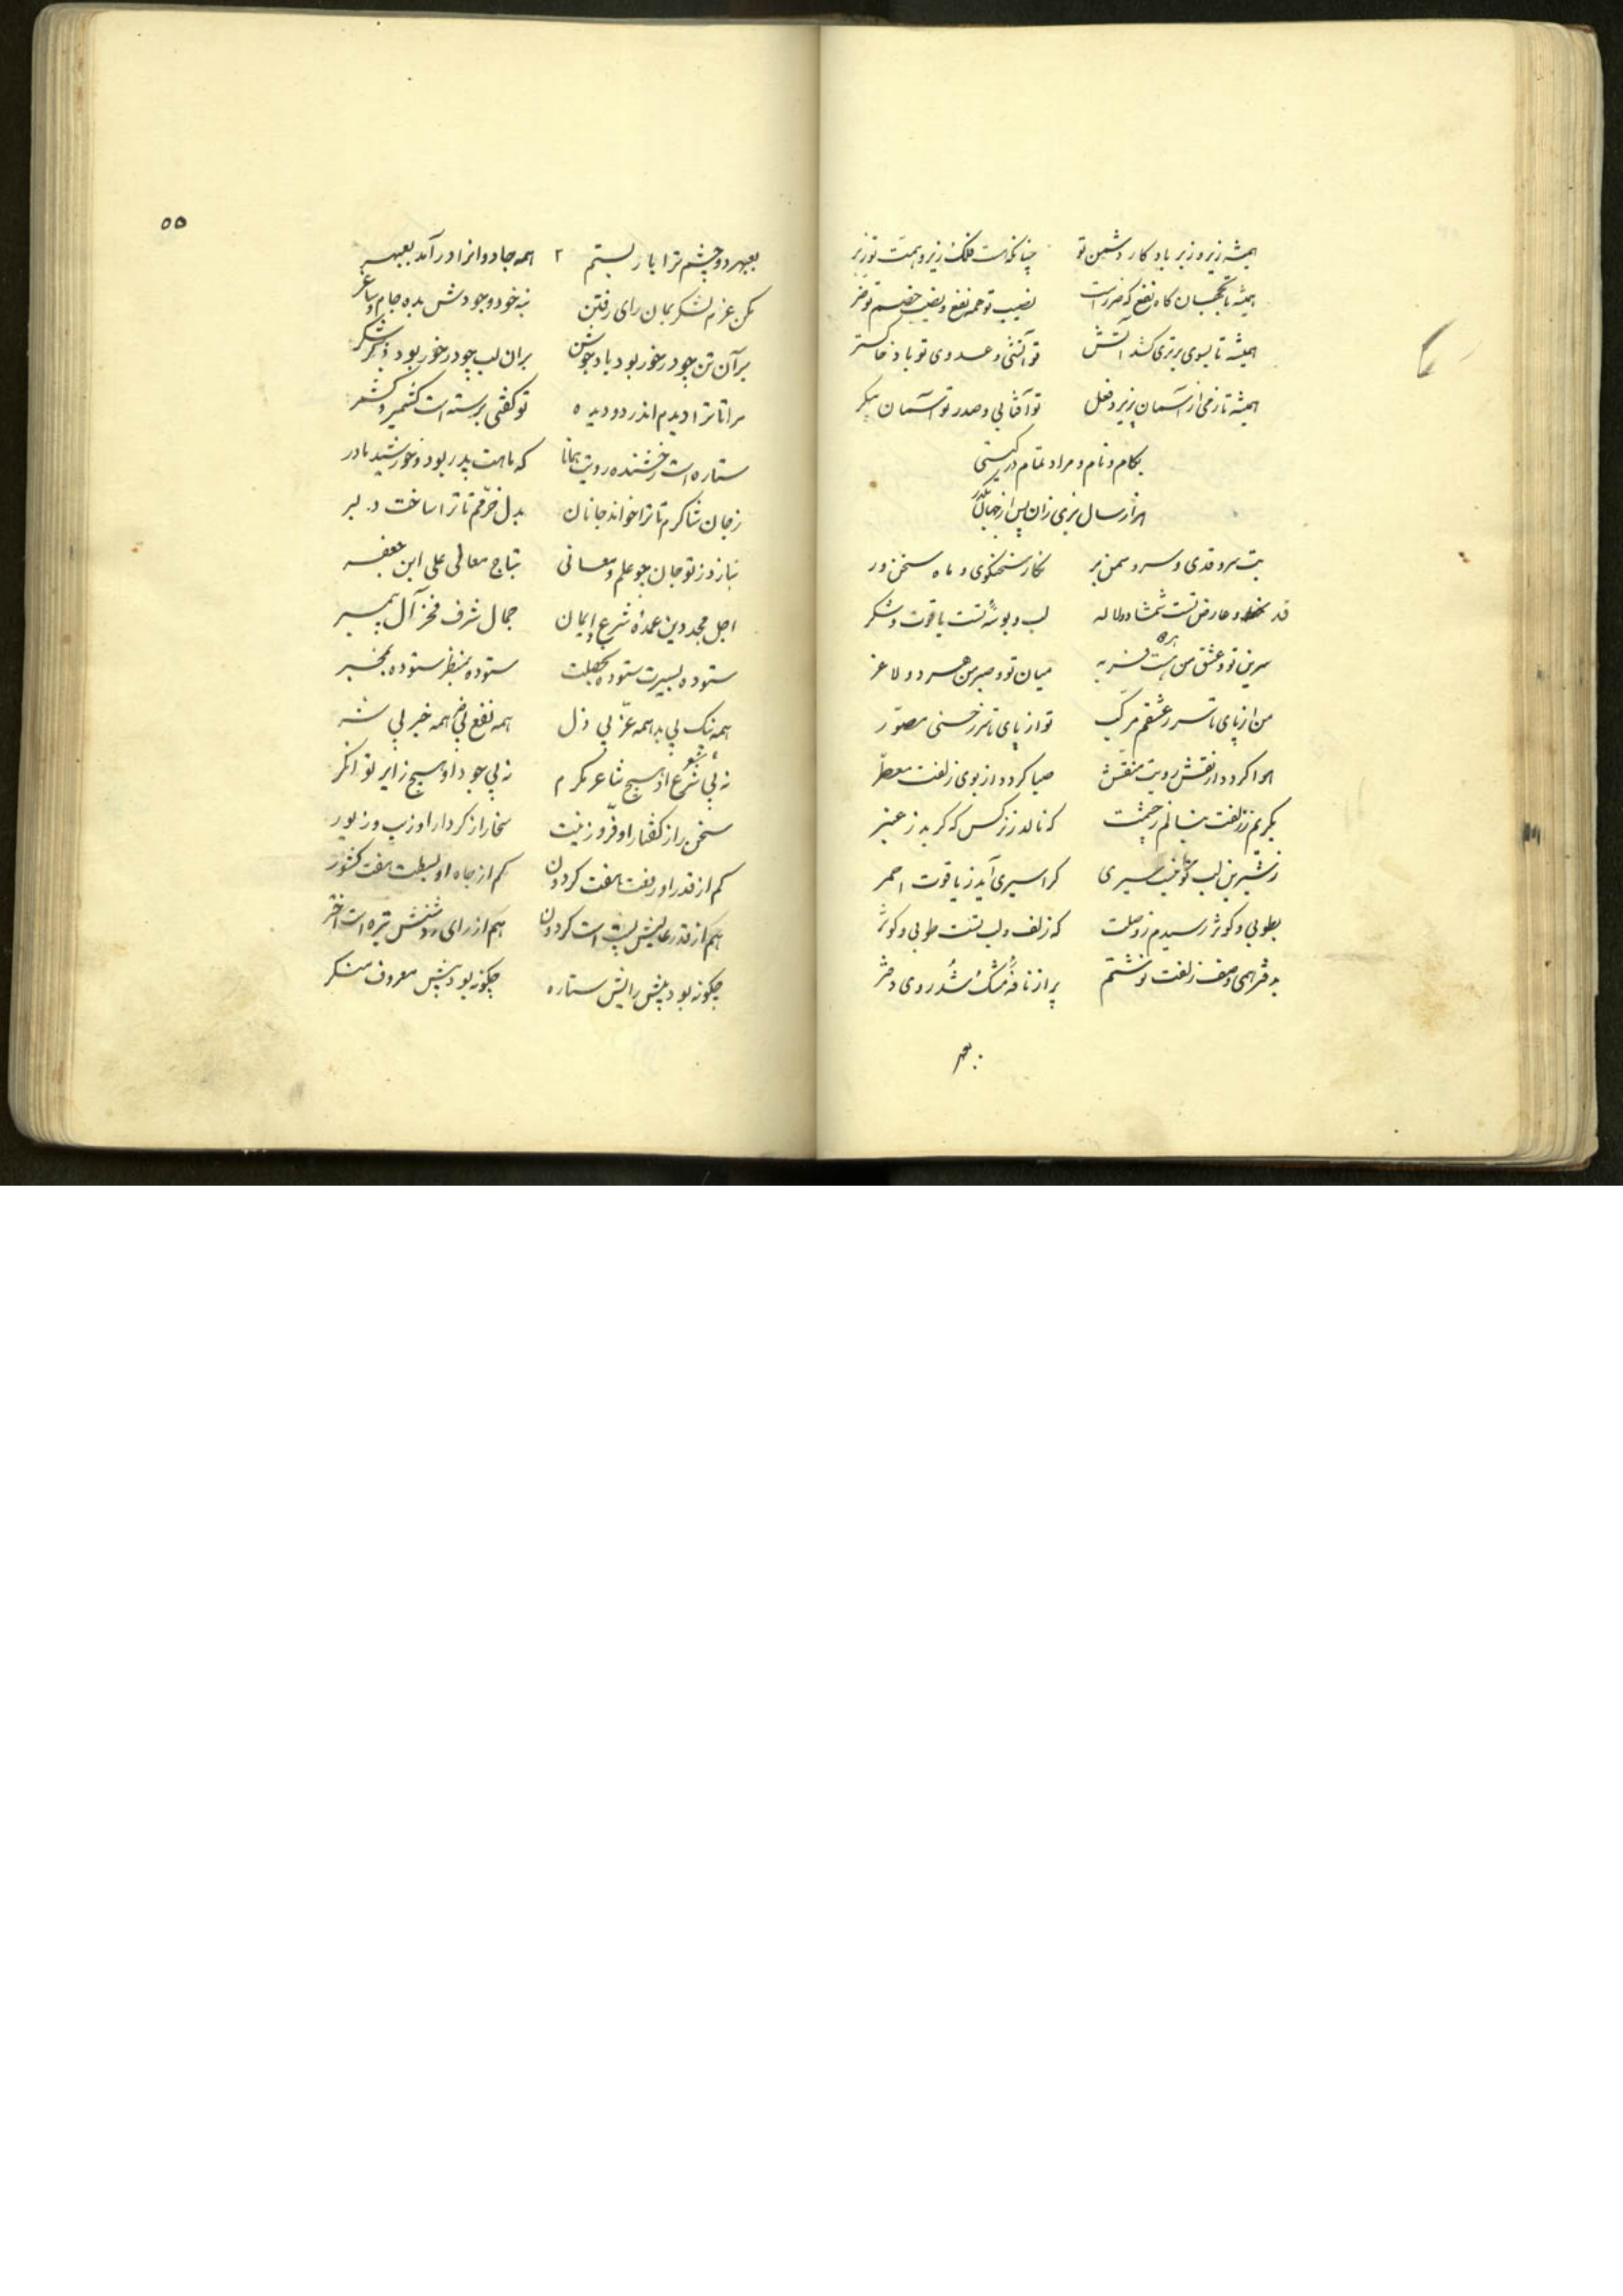 همیشه زیر و زبر باد کار دشمن تو چنانکه هست فلک زیر و همت تو زبر
همیشه تا بجهان گاه نفع و گه ضرر است نصیب تو همه نفع و نصیب خصم تو ضر
همیشه تا بسوی برتری کشد آتش تو آتشی و عدوی تو باد خاکستر
همیشه تا زمی از آسمان بزیر و تو آفتابی و صدر تو آسمان پیکر
بکام و نام و مراد تمام در گیتی
هزار سال بزی زان پس از جهان بگذر
بت سرو قدی و سرو سمن بر نگار سخنگوی و ماه سخن ور
قد و عارض تست شمشاد و لاله لب و بوسهٔ تست یاقوت و شکر
سرین تو و عشق من هست فربه میان تو و صبر من هر دو لاغر
من از پای تا سر ز عشقم مرکب تو از پای تا سر ز حسنی مصور
هوا گردد از نقش رویت منقش صبا گردد از بوی زلفت معطر
بگریم ز زلفت بنالم ز چشمت که نالد ز نرگس که گرید ز عنبر
ز شیرین لب تو نیست سیری کرا سیری آید ز یاقوت احمر
بطوبی و کوثر رسیدم ز وصلت که زلف و لب تست طوبی و کوثر
بدفتر همی وصف زلفت نوشتم پر از نافهٔ مشک شد روی دفتر
بعبهر
۵۵
بعبهر دو چشم ترا یار بستم همه جادوانرا درآمد بعبهر
مکن عزم لشکر بمان رای رفتن بنه خود و جوشن بده جام و ساغر
بر آن تن چو در خور بود باد جوشن بران لب چو در خور بود ذکر شکر
مرا تا ترا دیدم اندر دو دیده تو گفتی برسته است کشمیر و کشمر
ستاره است رخشنده رویت همانا که ماهت پدر بود و خورشید مادر
ز جان شاکرم تا ترا خواند جانان بدل خرمم تا ترا ساخت دلبر
بنازد ز تو جان چو علم و معانی بتاج معالی علی ابن جعفر
اجل مجد دین عمدهٔ شرع و ایمان جمال شرف فخر آل پیمبر
ستوده بسیرت ستوده بخصلت ستوده بمنظر ستوده بمخبر
همه نیک بی بد همه عز بی ذل همه نفع بی ضر همه خیر بی شر
نه بی شرع او هیچ شاعر مکرم نه بی جود او هیچ زایر توانگر
سخن را ز گفتار او فر و زینت سخا را ز کردار او زیب و زیور
کم از قدر او رفعت هفت گردون کم از جاه او بسطت هفت کشور
هم از قدر عالیش پست است گردون هم از رای روشنش تیره است اختر
چگونه بود پیش رایش ستاره چگونه بود پیش معروف منکر